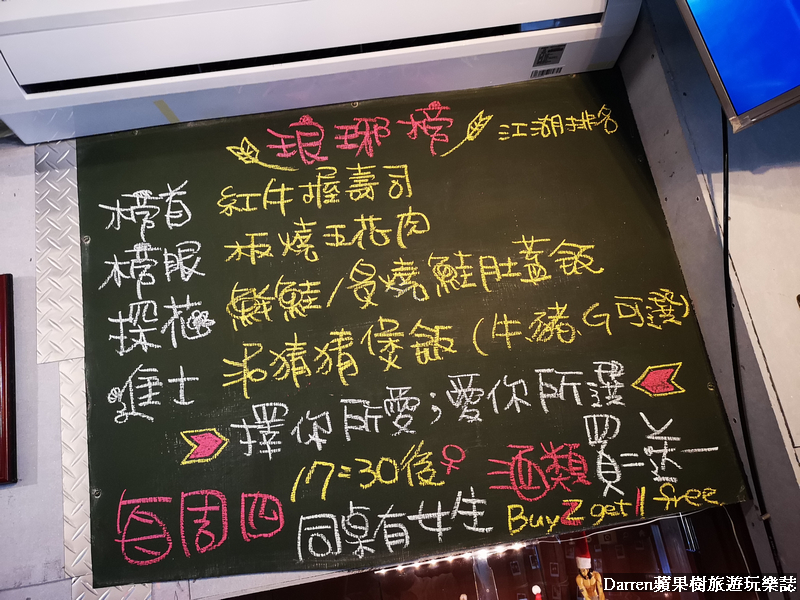 琅琊榜 江湖排名
榜首 紅牛握壽司
榜眼 板燒五花肉
探花 鮮鮭/炙燒鮭肚蓋飯
進士 泥猜猜煲飯(牛、豬、G可選)
擇你所愛；愛你所選
17=30後♀ 酒類 買二送一
每周四 同桌有女生 Buy 2 get 1 free
Darren蘋果樹旅遊玩樂誌